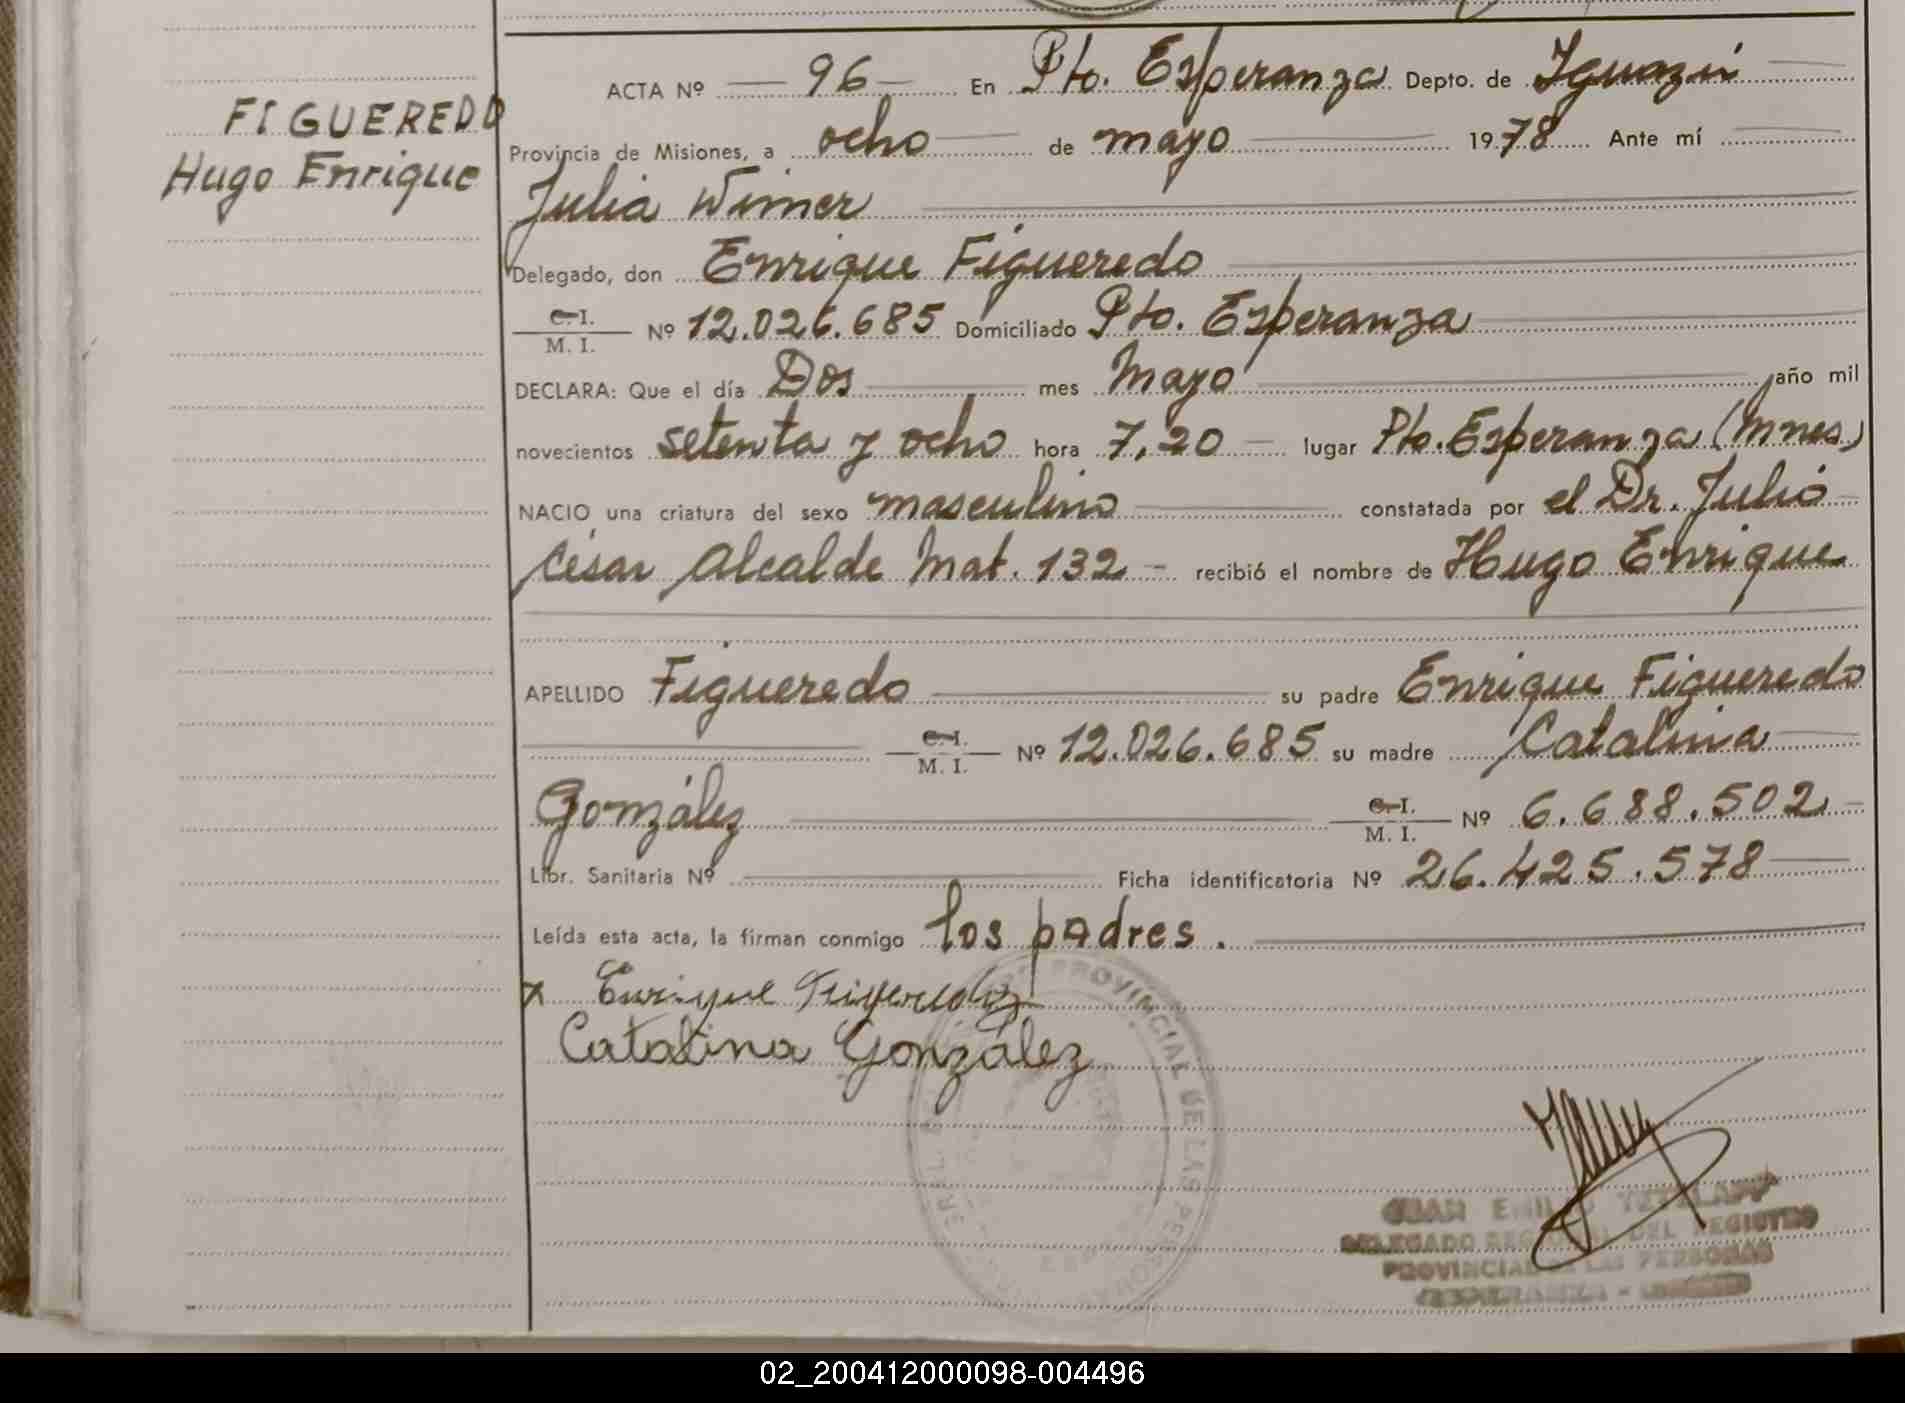 FIGUEREDO
Hugo Enrique
ACTA Nº 96 En Pto. Esperanza Depto. de Iguazú
Provincia de Misiones, a ocho de mayo 1978 Ante mí
Julia Wimer
Delegado, don Enrique Figueredo
C. I.
M. I. Nº 12.026.685 Domiciliado Pto. Esperanza
DECLARA: Que el día Dos mes Mayo año mil
novecientos setenta y ocho hora 7,20 lugar Pto. Esperanza (Mnes)
NACIO una criatura del sexo masculino constatada por el Dr. Julio
César Alcalde Mat. 132 - recibió el nombre de Hugo Enrique
APELLIDO Figueredo su padre Enrique Figueredo
C. I.
M. I. Nº 12.026.685 su madre Catalina
González C. I.
M. I. Nº 6.688.502
Libr. Sanitaria Nº Ficha identificatoria Nº 26.425.578
Leída esta acta, la firman conmigo los padres.
x Enrique Figueredo
Catalina González
PROVINCIAL DE LAS PERSONAS
JUAN EMILIO
DELEGADO REGIONAL DEL REGISTRO
PROVINCIAL DE LAS PERSONAS
ESPERANZA -
02_200412000098-004496